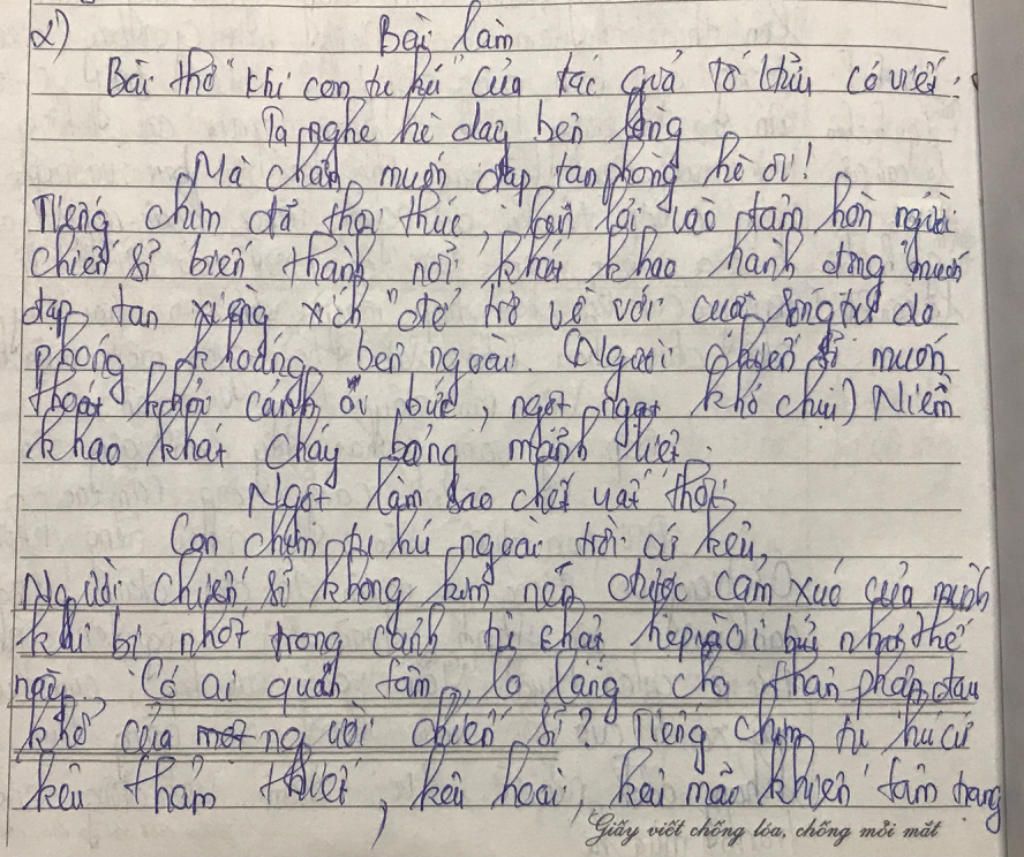 2) Bài làm
Bài thơ "Khi con tu hú" của tác giả Tố Hữu có viết:
Ta nghe hè dậy bên lòng
Mà chân muốn đạp tan phòng hè ôi!
Tiếng chim đã thôi thúc, len lỏi vào tâm hồn người
chiến sĩ biến thành nỗi khát khao hành động "muốn
đạp tan xiềng xích" để trở về với cuộc sống tự do
phóng khoáng bên ngoài. (Người chiến sĩ muốn
thoát khỏi cảnh ôi bức, ngột ngạt khó chịu) Niềm
khao khát cháy bỏng mãnh liệt.
Ngột làm sao chết uất thôi
Con chim tu hú ngoài trời cứ kêu,
Người chiến sĩ không kìm nén được cảm xúc của mình
khi bị nhốt trong cảnh tù chật hẹp nhơ thế
này. Có ai quan tâm, lo lắng cho thân phận đau
khổ của người chiến sĩ? Tiếng chim tu hú cứ
kêu thảm thiết, kêu hoài, kêu mãi khiến tâm trạng
Giấy viết chống lóa, chống mỏi mắt